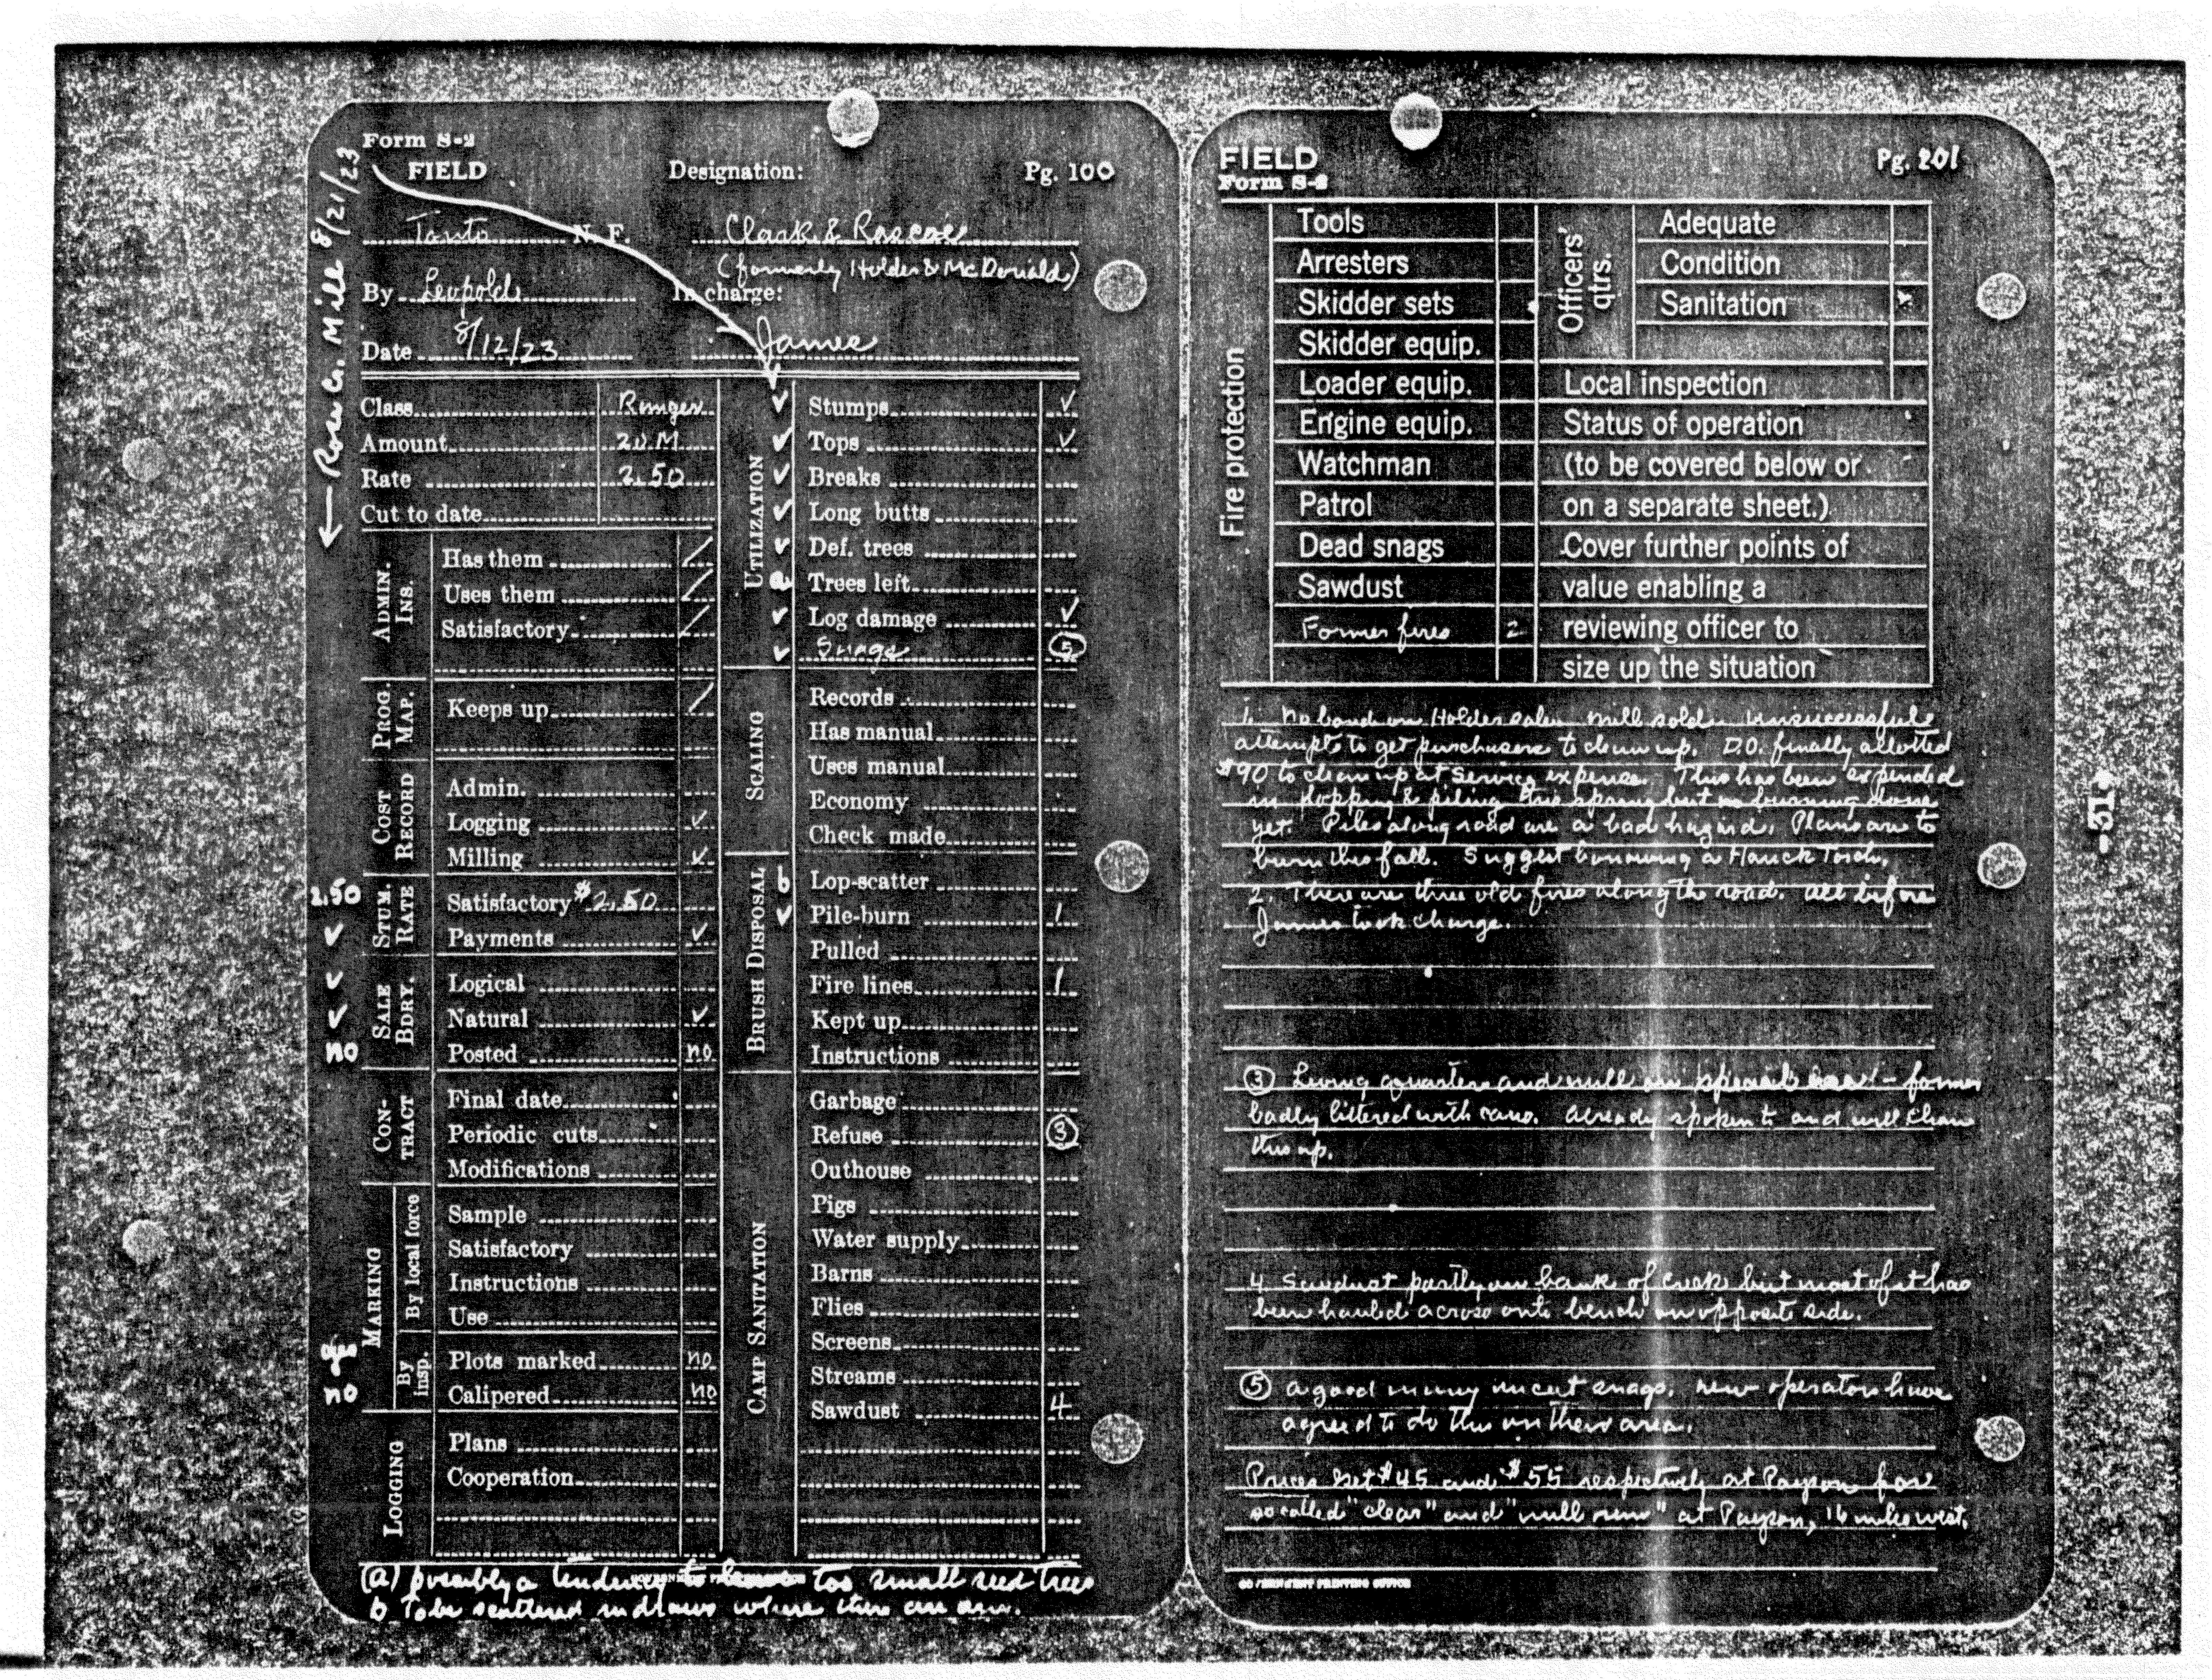 Form S-2
FIELD
Designation:
Pg. 100
Tonto N. F.
Clark & Roscoe
(formerly Holder & McDonald)
By Leopold
In charge:
James
Date 8/12/23
← Row G. Mill 8/21/23
Class Ranger
Amount 20 M
Rate 2.50
Cut to date
ADMIN. INS.
Has them /
Uses them /
Satisfactory /
PROG. MAP.
Keeps up /
COST RECORD
Admin.
Logging ✓
Milling ✓
STUM. RATE
2.50 Satisfactory $2.50
✓ Payments ✓
SALE BDRY.
✓ Logical
✓ Natural ✓
no Posted no
CONTRACT
Final date
Periodic cuts
Modifications
MARKING
By local force
Sample
Satisfactory
Instructions
Use
By insp.
yes Plots marked no
no Calipered no
LOGGING
Plans
Cooperation
UTILIZATION
✓ Stumps ✓
✓ Tops ✓
✓ Breaks
✓ Long butts
✓ Def. trees
a Trees left
✓ Log damage ✓
✓ Snags 5
SCALING
Records
Has manual
Uses manual
Economy
Check made
BRUSH DISPOSAL
b Lop-scatter
✓ Pile-burn 1
Pulled
Fire lines 1
Kept up
Instructions
CAMP SANITATION
Garbage
Refuse 3
Outhouse
Pigs
Water supply
Barns
Flies
Screens
Streams
Sawdust 4
(a) possibly a tendency to leave too small seed trees
b To be scattered in draws where there are any.
FIELD
Form S-2
Pg. 201
Fire protection
Tools
Arresters
Skidder sets
Skidder equip.
Loader equip.
Engine equip.
Watchman
Patrol
Dead snags
Sawdust
Former fires 2
Officers' qtrs.
Adequate
Condition
Sanitation
Local inspection
Status of operation
(to be covered below or
on a separate sheet.)
Cover further points of
value enabling a
reviewing officer to
size up the situation
1. No bond on Holder sale. Mill sold. Unsuccessful
attempts to get purchasers to clean up. D.O. finally allotted
$90 to clean up at Service expense. This has been expended
in lopping & piling this spring but no burning done
yet. Piles along road are a bad hazard. Plans are to
burn this fall. Suggest borrowing a Hauck Torch.
2. There are three old fires along the road. All before
James took charge.
3 Living quarters and mill on special use - former
badly littered with cans. Already spoken to and will clean
this up.
4. Sawdust partly on bank of creek but most of it has
been hauled across onto bench on opposite side.
5 A good many uncut snags. New operators have
agreed to do this on their area.
Prices Get $45 and $55 respectively at Payson for
so called "clear" and "mill run" at Payson, 16 miles west.
GOVERNMENT PRINTING OFFICE
-51-